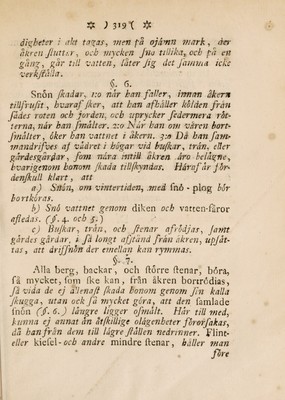 ☼ ) 319 ( ☼
digheter i akt tagas, men på ojämn mark, der
åkren sluttar, och mycken snö tillika, och på en
gång, går till vatten, låter sig det samma icke
verkställa.
§. 6.
Snön skadar, 1:o når han faller, innan åkern
tillfrusit, hvaraf sker, att han afhåller kölden från
sådes roten och jorden, och uprycker sedermera röt-
terna, når han smälter. 2:o Når han om våren bort-
smälter, öker han vattnet i åkern. 3:o Då han sam-
mandrifves af vädret i högar vid buskar, trån, eller
gårdesgårdar, som nåra intill åkren åro belägne,
hvarigenom honom skada tillskyndas. Håraf år för-
denskull klart, att
a) Snön, om vintertiden, med snö-plog bör
bortköras.
b) Snö vattnet genom diken och vatten-fåror
afledas. (§. 4. och 5.)
c) Buskar, trån, och stenar afrödjas, samt
gårdes gårdar, i så långt afstånd från åkren, upsät-
tas, att drifsnön der emellan kan rymmas.
§. 7.
Alla berg, backar, och större stenar, böra,
så mycket, som ske kan, från åkren bortrödias,
så vida de ej allenast skada honom genom sin kalla
skugga, utan ock så mycket göra, att den samlade
snön (§. 6.) långre ligger osmält. Hår till med,
kunna ej annat än åtskillige olägenheter förorsakas,
då han från dem till lågre ställen nedrinner. Flint-
eller kiesel-och andre mindre stenar, håller man
före